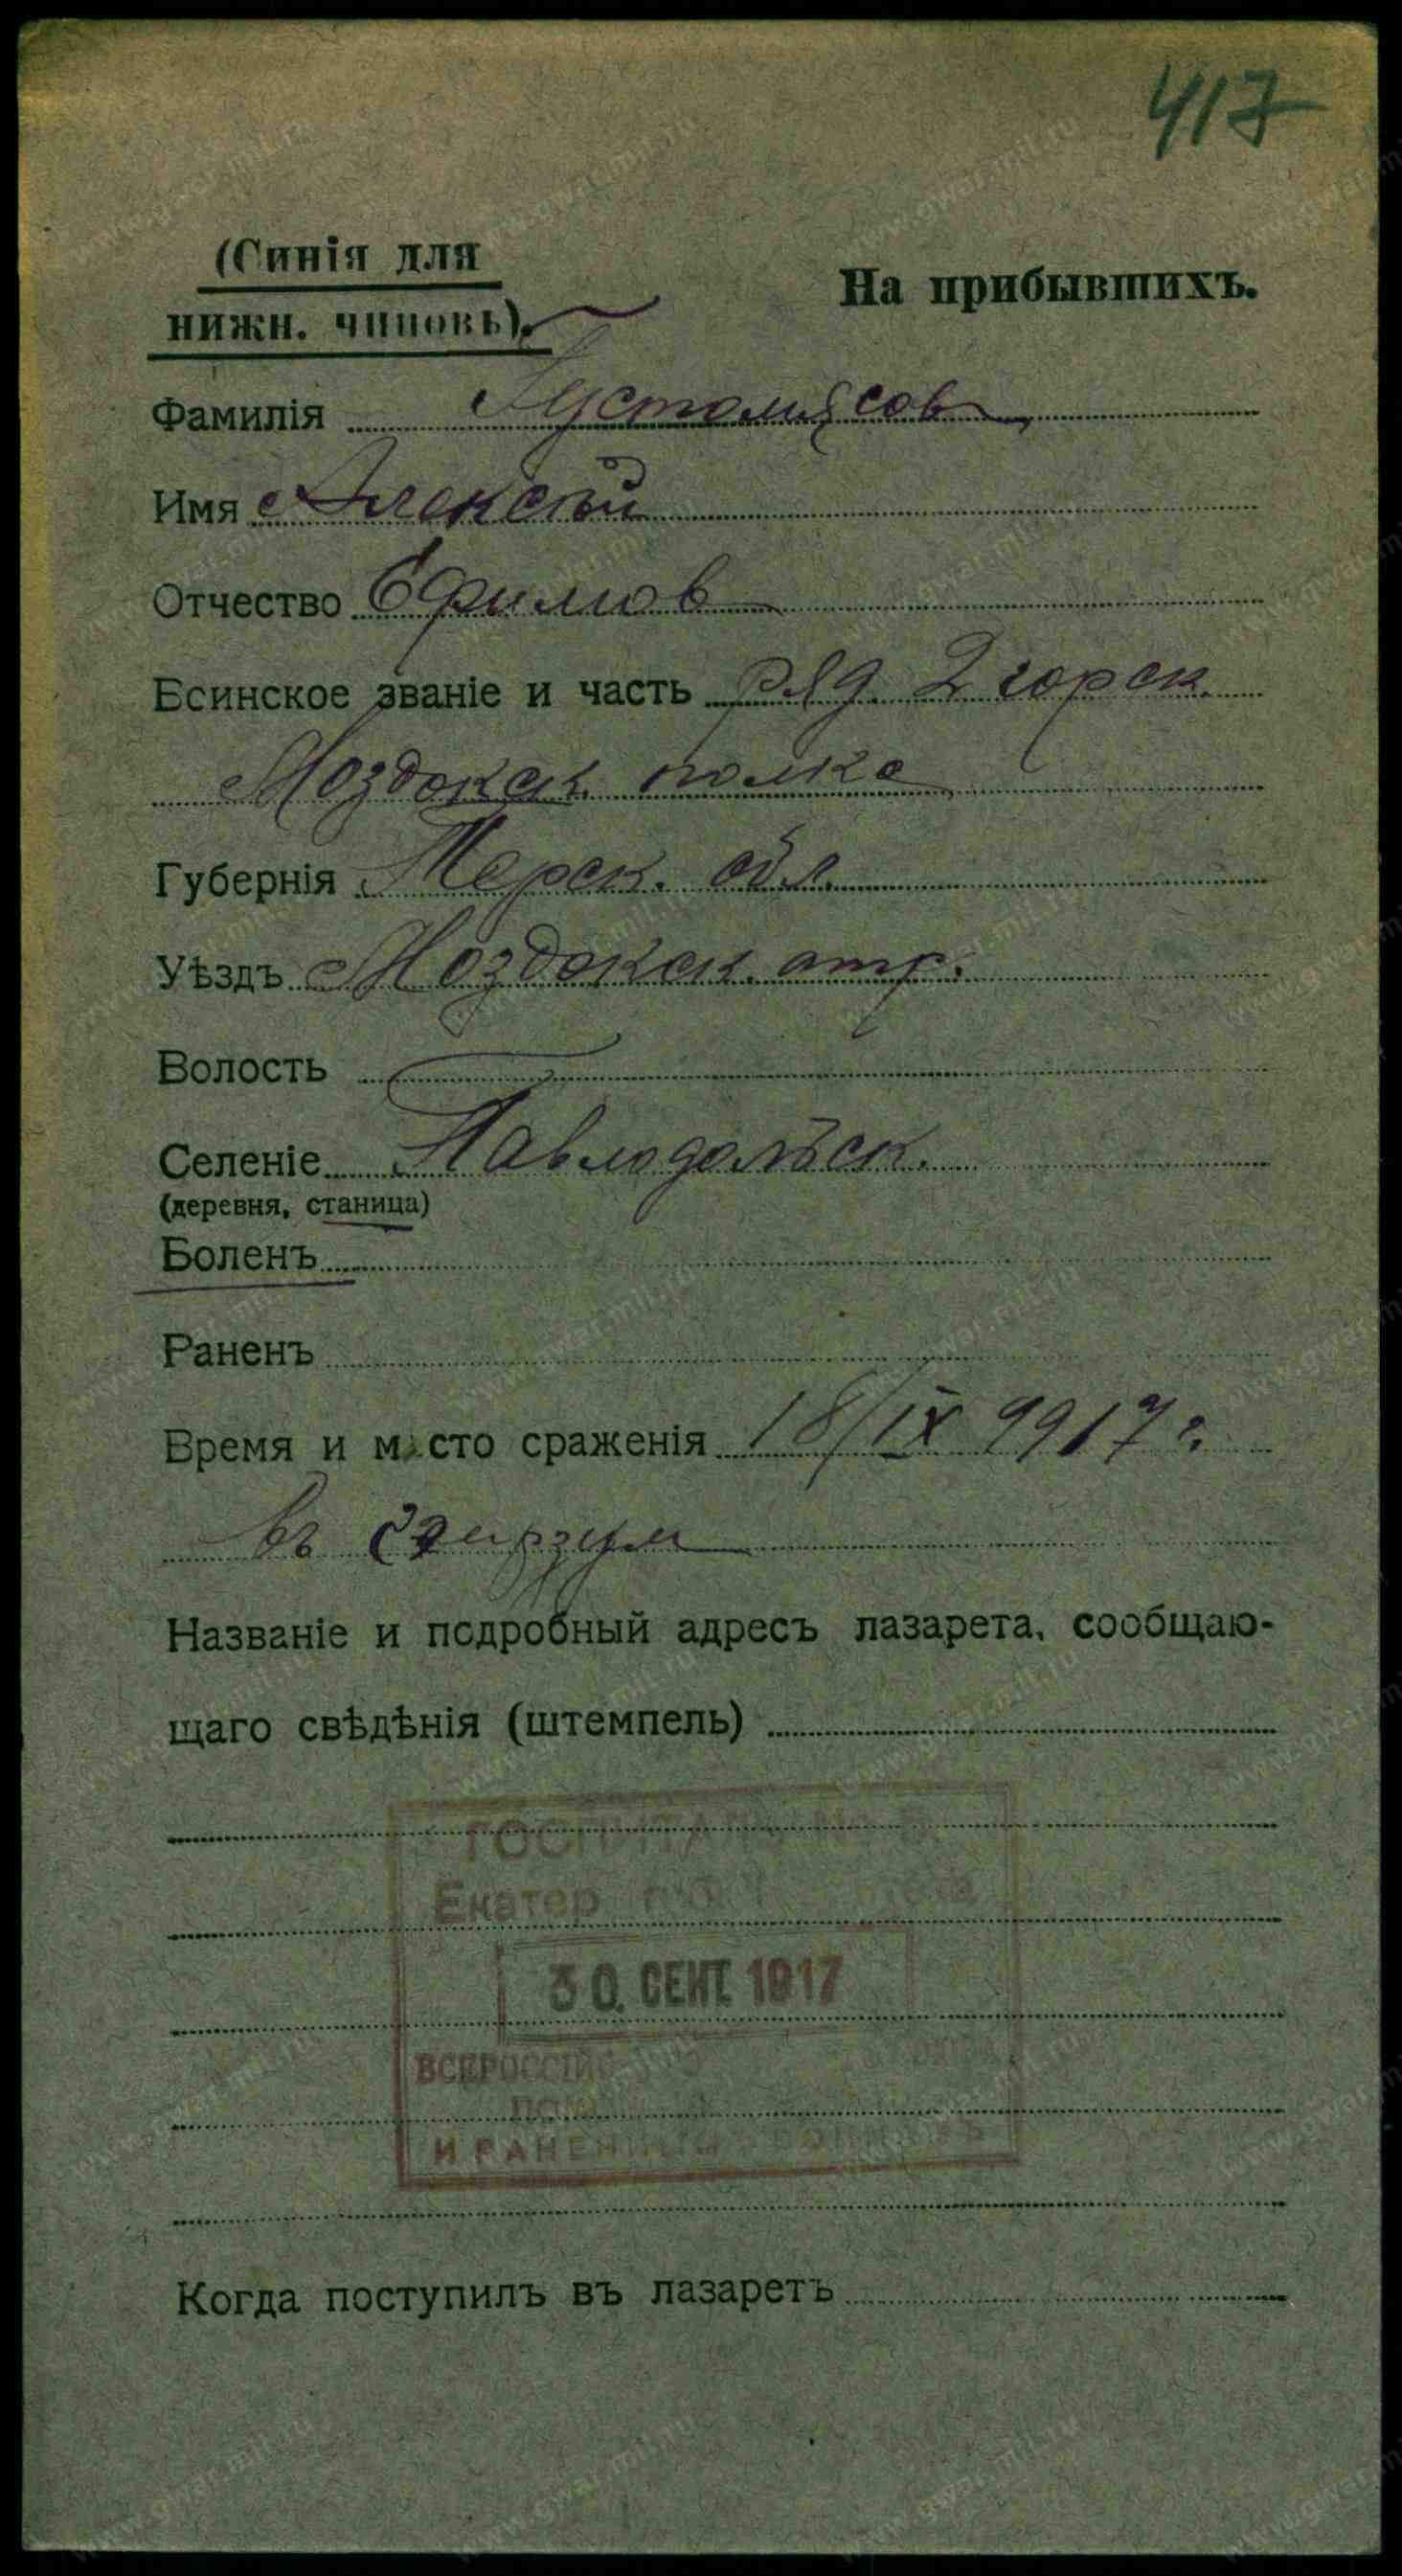 417
(Синія для
нижн. чиновъ).
На прибывшихъ.
Фамилія Густомясов
Имя Алексѣй
Отчество Ефимов
Есинское званіе и часть ряд. 2 горск.
Моздокск. полка
Губернія Терск. обл.
Уѣздъ Моздокск. отд.
Волость
Селеніе Павлодольск.
(деревня, станица)
Боленъ
Раненъ
Время и мѣсто сраженія 18/IX 1917 г.
въ
Названіе и подробный адресъ лазарета, сообщаю-
щаго свѣдѣнія (штемпель)
ГОСПИТАЛЬ
Екатер
30. СЕНТ. 1917
ВСЕРОССІЙС
ПОМ
И РАНЕНЫМЪ ВОИНАМЪ
Когда поступилъ въ лазаретъ